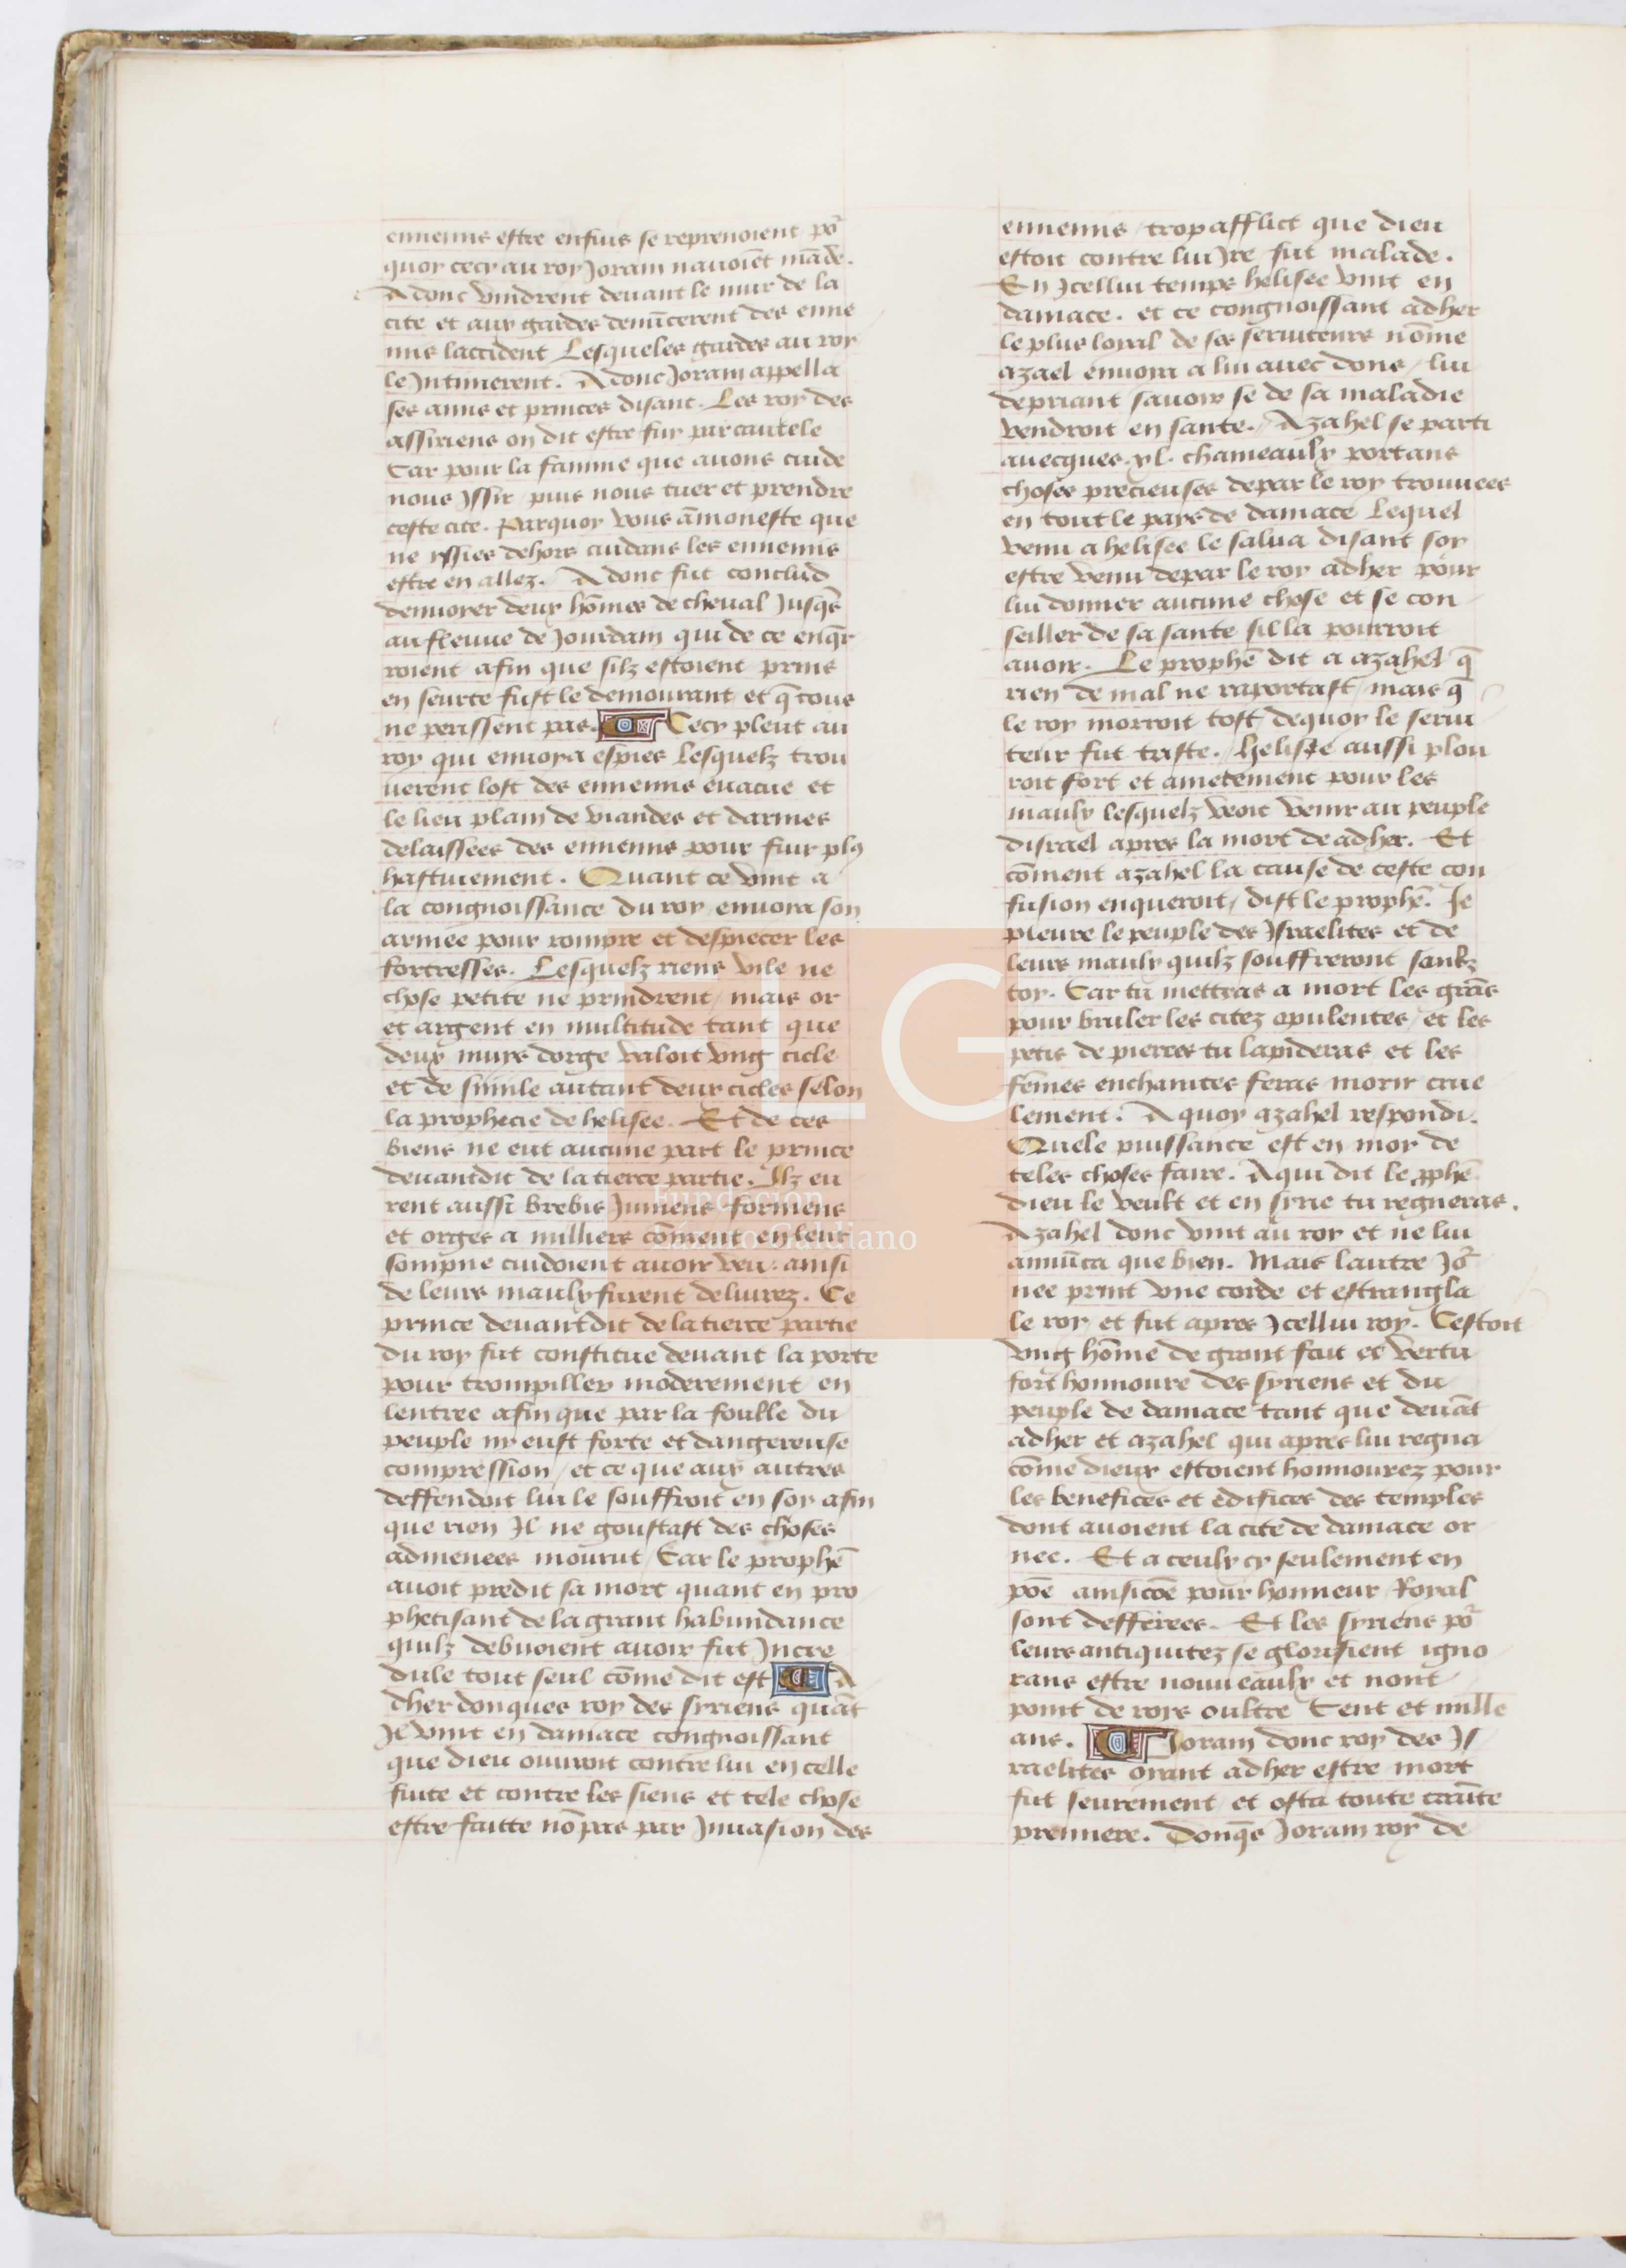 ennemis estre enfuis se reprenoient po᷑
quoy cecy au roy Joram nauoiēt mādé.
Adonc vindrent deuant le mur de la
cite et aux gardes denūcerent des enne
mis laccident Lesqueles gardes au roy
le Jntimerent. Adonc Joram appella
ses amis et princes disant. Les roy des
assiriens on dit estre fuy par cautele
Car pour la famine que auons cuide
nous Jssir puis nous tuer et prendre
ceste cite. Parquoy vous āmoneste que
ne yssies dehors cuidans les ennemis
estre en allez. Adonc fut conclud
denuoyer deux hōmes de cheval Jusqs̄
au fleuue de Jourdam qui de ce enqr̄
roient afin que silz estoient prins
en seurte fust le demourant et q̄ tous
ne perissent pas. Cecy pleut au
roy qui enuoya espies Lesquelz trou
uerent lost des ennemis euacue et
le lieu plain de viandes et darmes
delaissees des ennemis pour fuir plꝰ
hastiuement. Quant ce vint a
la congnoissance du roy enuoya son
armee pour rompre et despiecer les
fortresses. Lesquelz riens vile ne
chose petite ne prindrent / mais or
et argent en multitude tant que
deux muys dorge valoit vng cicle
et de simile autant deux cicles selon
la prophecie de helisee. Et de ces
biens ne eut aucune part le prince
deuantdit de la tierce partie. Ilz eu
rent aussi brebis Jumens formens
et orges a milliers cōment en leur
sompne cuidoient auoir veu. ainsi
de leurs maulx furent deliurez. Ce
prince deuantdit de la tierce partie
du roy fut constitue deuant la porte
pour trompiller moderement en
lentree afin que par la foulle du
peuple ny eust forte et dangereuse
compression / et ce que aux autres
deffendoit lui le souffroit en soy afin
que rien Il ne goustast des choses
admenees mourut / Car le prophē
auoit predit sa mort quant en pro
phetisant de la grant habundance
quilz debuoient auoir fut Jncre
dule tout seul cōme dit est A
dher donques roy des syriens quāt
Il vint en damace congnoissant
que dieu ouuroit contre lui en celle
fuite et contre les siens et tele chose
estre faitte nō pas par Jnuasion des
ennemis / trop afflict que dieu
estoit contre lui Jre fut malade.
En Jcellui temps helisee vint en
damace. et ce congnoissant adher
le plus loyal de ses seruiteurs nōme
azael enuoya a lui auec dons / lui
depriant sauoir se de sa maladie
vendroit en sante. Azahel se parti
auecques .xl. chameaulx portans
choses precieuses depar le roy trouuees
en tout le pays de damace Lequel
venu a helisee le salua disant soy
estre venu depar le roy adher pour
lui donner aucune chose et se con
seiller de sa sante sil la pourroit
auoir. Le prophē dit a azahel q̄
rien de mal ne raportast / mais q̄
le roy morroit tost dequoy le serui
teur fut triste. helisee aussi plou
roit fort et amerement pour les
maulx lesquelz veoit venir au peuple
disrael apres la mort de adher. Et
cōment azahel la cause de ceste con
fusion enqueroit / dist le prophē. Je
pleure le peuple des Jsraelites et de
leurs maulx quilz souffreront soubz
toy. Car tu mettras a mort les grās
pour bruler les citez opulentes / et les
petis de pierres tu lapideras et les
fēmes enchaintes feras morir crue
lement. A quoy azahel respondi.
Quele puissance est en moy de
teles choses faire. A qui dit le ꝓphē
dieu le veult et en syrie tu regneras.
Azahel donc vint au roy et ne lui
annūca que bien. Mais lautre Jo᷑
nee print vne corde et estrangla
le roy et fut apres Jcellui roy. Cestoit
vng hōme de grant fait et vertu
fort honnoure des syriens et du
peuple de damace tant que deuāt
adher et azahel qui apres lui regna
cōme dieux estoient honnourez pour
les benefices et edifices des temples
dont auoient la cite de damace or
nee. Et a ceulx cy seulement en
pōe ainsicōe pour honneur Royal
sont defferees. Et les syriens po᷑
leurs antiquitez se glorifient igno
rans estre nouueaulx et nont
point de roys oultre Cent et mille
ans. Joram donc roy des Js
raelites oyant adher estre mort
fut seurement et osta toute craīte
premiere. Donqs̄ Joram roy de
FLG
Fundación
Lázaro Galdiano